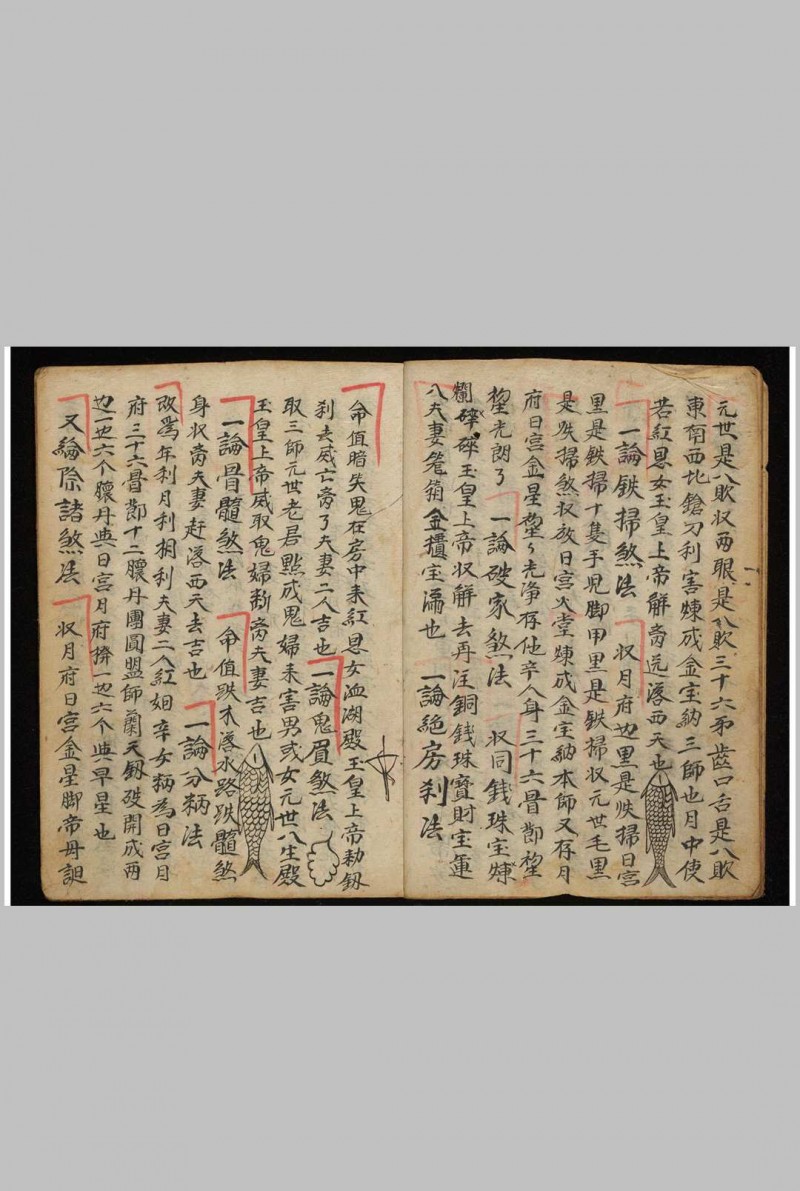 元世是八敗収两眼是八敗三十六牙齒口舌是八敗
東南西北鎗刀利害煉成金宝納三師也月中使
若紅恩女玉皇上帝解夯送落西天也
一論鉄掃煞法 収月府边黑是鉄掃日宮
里是鉄掃十隻手児脚甲里是鉄掃収元世毛黑
是鉄掃煞収放日宮火堂煉成金宝納本師又存月
府日宮金星 光净存他卒人身三十六骨節
光朗了 一論破家煞法 収同錢珠宝煉
爛碎碎玉皇上帝収解去再注銅錢珠寶財宝運
八夫妻笼箱金櫃宝滿也 一論絕房刹法
命值暗失鬼在房中来紅恩女血湖殿玉皇上帝勅釼
刹去威亡夯了夫妻二人吉也 一論鬼眉煞法
取三師元世老君點成鬼婦来害男或女元世八生殿
玉皇上帝威取鬼婦断夯夫妻吉也
一論骨髓煞法 命值跌木落水路跌髓煞
身収夯夫妻赶落西天去吉也 一論分柄法
改為年利月利相利夫妻二人紅姻辛女柄為日宮月
府三十六骨節十二臟丹團圓盟師蘭天釼破開成两
边一边六个臟丹與日宮月府擠一边六个與早星也
又論除諸煞法 収月府日宮金星脚帝母詚